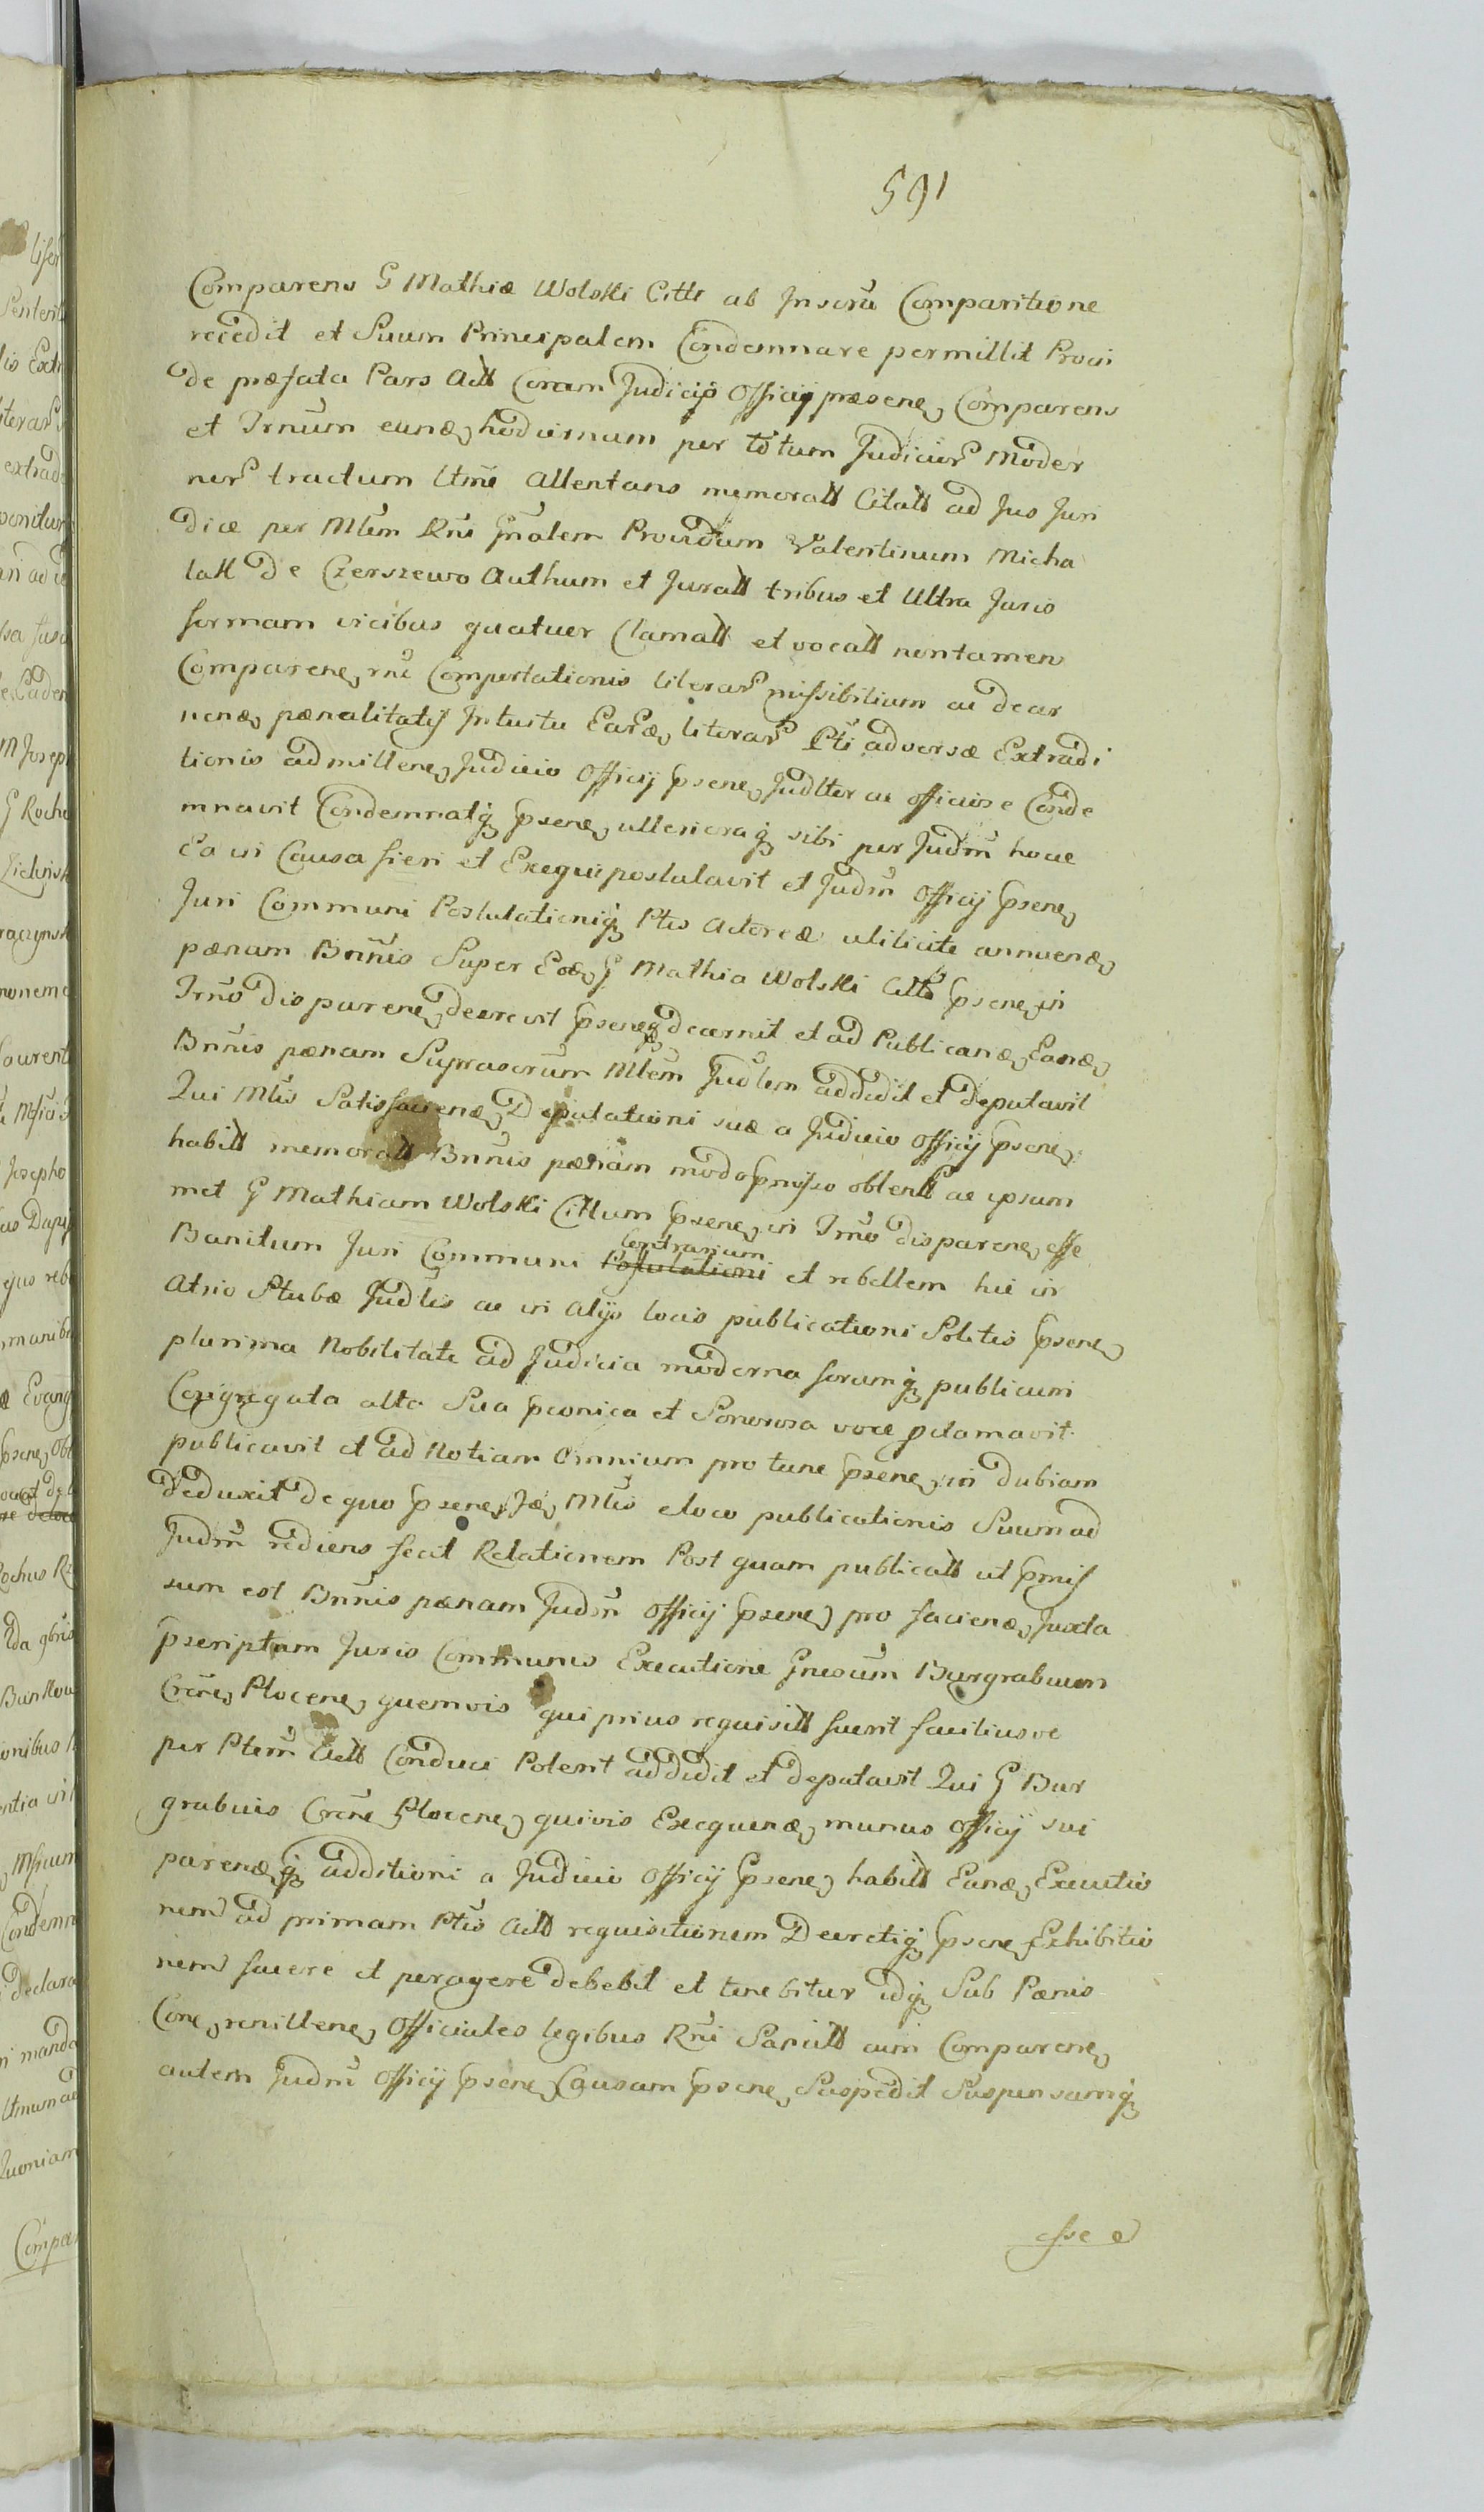 591
Comparens G Mathiæ Wolski Citti ab Inscrũ Comparitione
recedit et Suum Principalem Condemnare permittit Proin
de præfata Pars Actt Coram Judicijs Officij præsene, Comparens
et Trnũm eunđ, hodiernum per totum Judicior Moder
nor tractum Ltmẽ Attentans memoratt Citatt ad Jus Juri
dice per Mlẽm Rnĩ Gnãlem Providum Valentinum Micha
lak de Czerszewo Authum et Juratt tribus et Ultra Juris
formam vicibus quatuor Clamatt et vocatt nontamen
Comparene, rnẽ Comportationis literar missibilium ac decer
nenđ, pænalitatis Intuitu Earđ, literar Pti adversæ Extradi
tionis admittene, Judicio Officij psene, Judltter ac officiose Conde
mnavit Condemnatq psene, ulterioraq sibi per Judm̃ hocce
Ea in Causa fieri et Exequi postulavit et Judm̃ Officij psene,
Juri Communi Postulationiq Ptis Actoreæ utilicite annuenđ,
pænam Bnñis Super Eođ, G Mathia Wolski Citto psene, in
Trnõ disparene, decrevit pseneq decernit et ad Publicanđ, Eanđ,
Bnñis pænam Suprascrũm Mlẽm Judlem addidit et deputavit
Qui Mlis Satisfacienđ, Deputationi suæ a Judicio Officij psene,
habitt memoratt Bnñis pænam modo pmisso obtentt ac ipsum
met G Mathiam Wolski Cittum psene, in Trnõ disparene, esse
Contrarium
Banitum Juri Communi Postulationi et rebellem hic in
Atrio Stubæ Judlis ac in alijs locis publicationi Solitis psene,
plurima Nobilitate ad Judicia moderna forumq publicum
Congregata alta Sua pconica et Sonorosa voce pclamavit
publicavit et ad Notiam Omnium pro tunc psene, in dubiam
deduxit de quo psene, Iđ, Mlis eloco publicationis Suum ad
Judm̃ rediens fecit Relationem Post quam publicatt ut pmis
sum est Bnñis pænam Judm̃ Officij psene, pro facienđ, Juxta
pscriptum Juris Communis Executione Gnrosũm Burgrabium
Crẽne, Plocene, quemvis qui prius requisitt fuerit faciliusve
per Ptem̃ Actt Conduci Poterit addidit et deputavit Qui G Bur
grabius Crẽne Plocene, quivis Exequenđ, munus Officij sui
parenđq additioni a Judicio Officij psene, habitt Eanđ, Executio
nem ad primam Ptis Actt requisitionem Decretiq psene, Exhibitio
nem facere et peragere debebit et tenebitur idq Sub Pænis
Cone, renittene, Officiales legibus Rnĩ Sancitt cum Comparene,
autem Judm̃ Officij psene, Causam psene, Suspedit Suspensamq
esse e